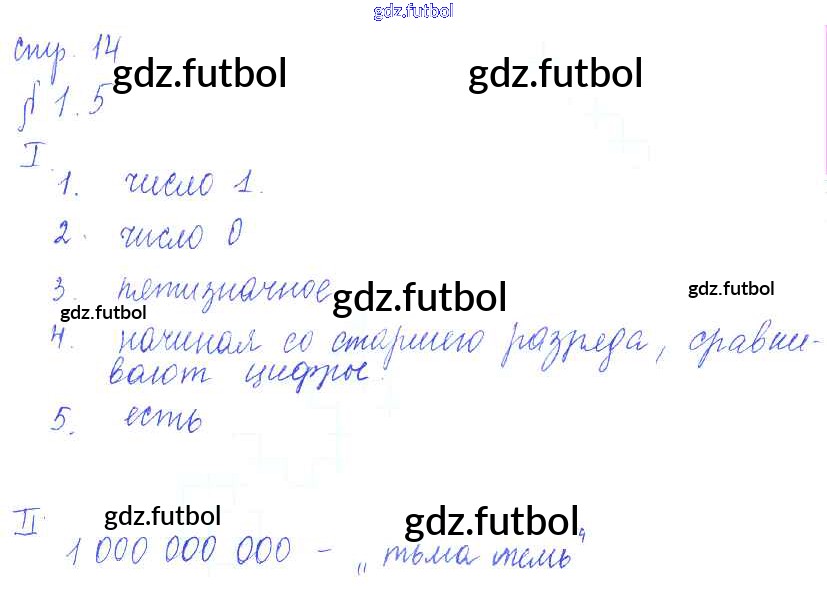 gdz.futbol
стр. 14
gdz.futbol gdz.futbol
§ 1.5
I.
1. число 1.
2. число 0
3. пятизначное
gdz.futbol gdz.futbol
gdz.futbol
4. начиная со старшего разряда, сравни-
вают цифры.
5. есть
gdz.futbol gdz.futbol
II.
1 000 000 000 - „тьма темь“